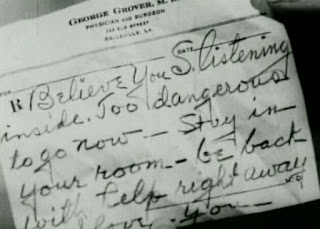 GEORGE GROVER, M. D.
PHYSICIAN AND SURGEON
ELM STREET
BELLEVILLE, LA.
DATE
FOR
R Believe you S. listening
inside. Too dangerous
to go now — Stay in
your room — be back
with help right away
love you —